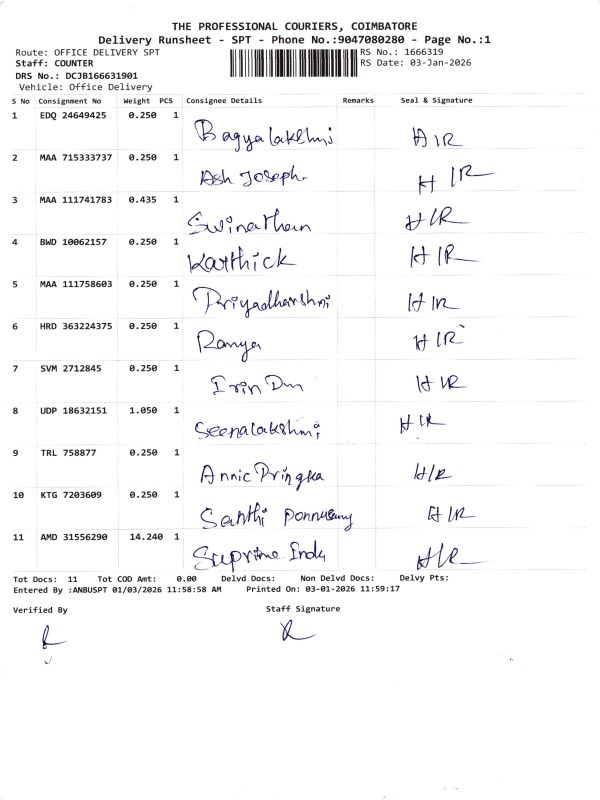 THE PROFESSIONAL COURIERS, COIMBATORE
Delivery Runsheet - SPT - Phone No.:9047080280 - Page No.:1
Route: OFFICE DELIVERY SPT RS No.: 1666319
Staff: COUNTER RS Date: 03-Jan-2026
DRS No.: DCJB166631901
Vehicle: Office Delivery
S No Consignment No Weight PCS Consignee Details Remarks Seal & Signature
1 EDQ 24649425 0.250 1 Bagyalakshmi HIR
2 MAA 715333737 0.250 1 Ash Joseph. HIR
3 MAA 111741783 0.435 1 HIR
4 BWD 10062157 0.250 1 Karthick HIR
5 MAA 111758603 0.250 1 Priyadharshni HIR
6 HRD 363224375 0.250 1 Ramya HIR
7 SVM 2712845 0.250 1 Irin HIR
8 UDP 18632151 1.050 1 Seenalakshmi HIR
9 TRL 758877 0.250 1 Annic Pringka HIR
10 KTG 7203609 0.250 1 Santhi Ponnusamy HIR
11 AMD 31556290 14.240 1 Suprime HIR
Tot Docs: 11 Tot COD Amt: 0.00 Delvd Docs: Non Delvd Docs: Delvy Pts:
Entered By :ANBUSPT 01/03/2026 11:58:58 AM Printed On: 03-01-2026 11:59:17
Verified By Staff Signature